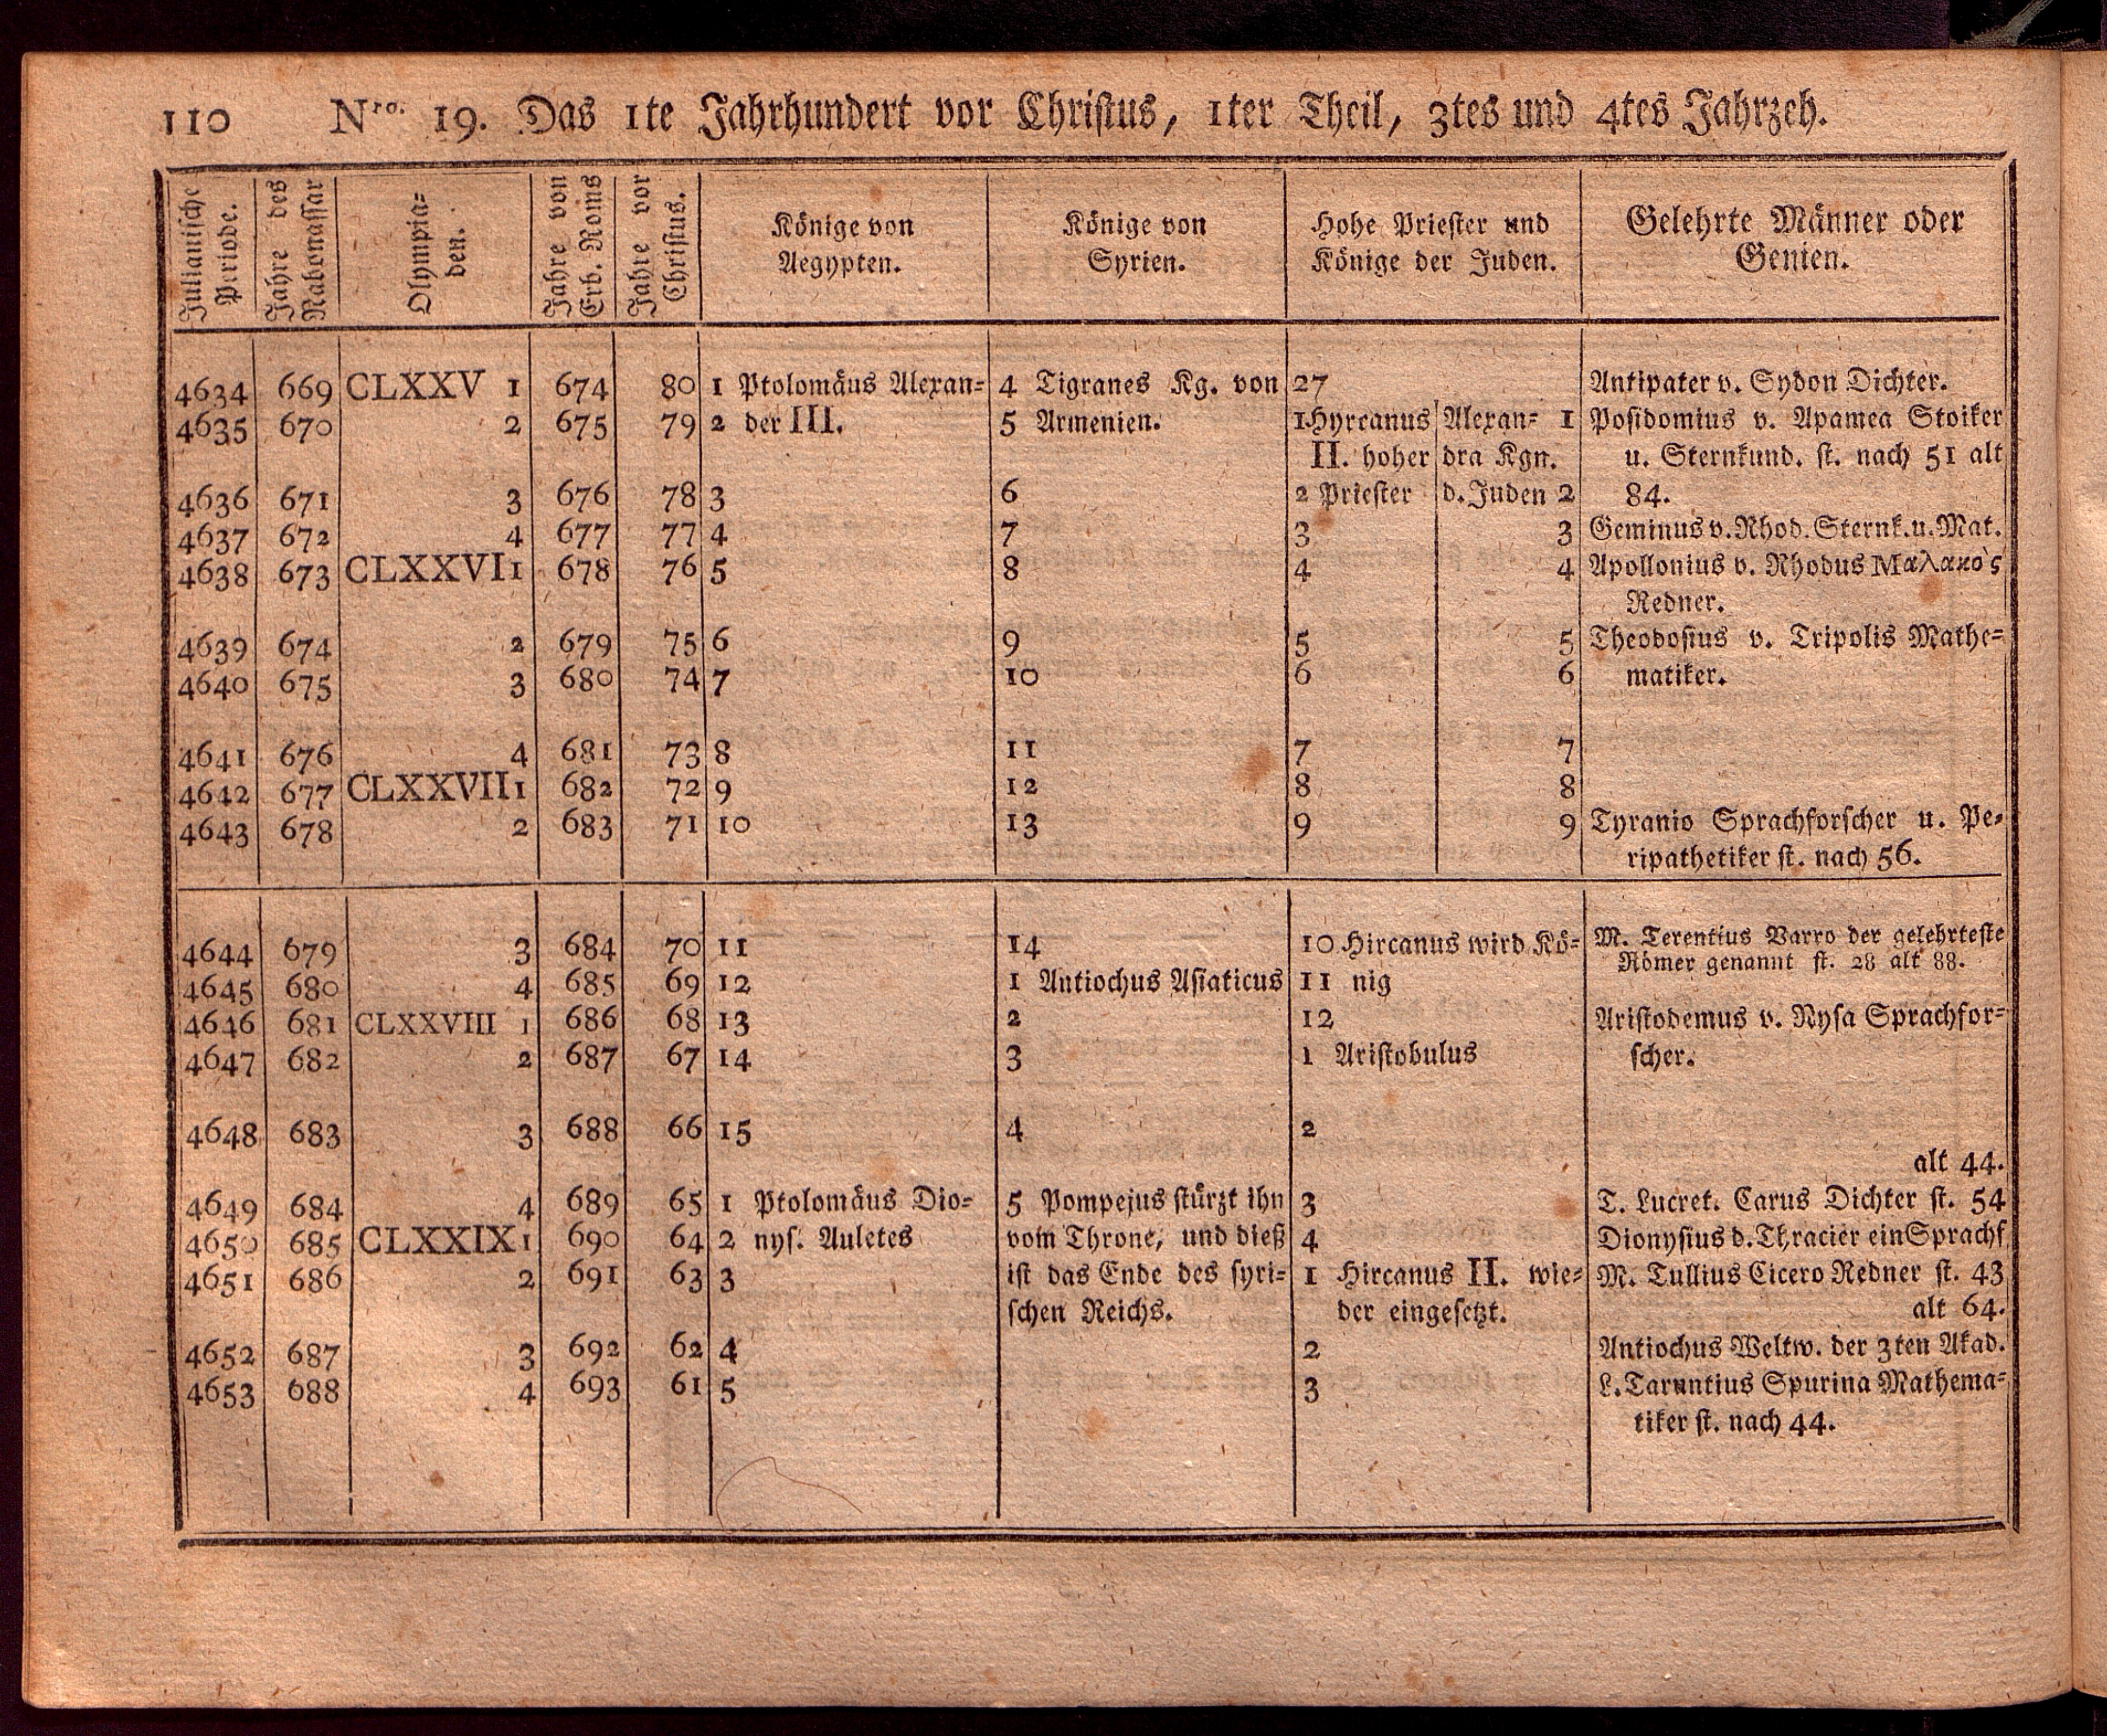 110 Nro. 19. Das 1te Jahrhundert vor Christus, 1ter Theil, 3tes und 4tes Jahrzeh.
Julianische Periode. Jahre des Nabonassar Olympia= den. Jahre von Erb. Roms Jahre vor Christus. Könige von Aegypten. Könige von Syrien. Hohe Priester und Könige der Juden. Gelehrte Männer oder Genien.
4634 669 CLXXV 1 674 80 1 Ptolomäus Alexan= 4 Tigranes Kg. von 27 Antipater v. Sydon Dichter.
4635 670 2 675 79 2 der III. 5 Armenien. 1 Hyrcanus Alexan= 1 Posidomius v. Apamea Stoiker
II. hoher dra Kgn. u. Sternkund. st. nach 51 alt
4636 671 3 676 78 3 6 2 Priester d. Juden 2 84.
4637 672 4 677 77 4 7 3 3 Geminus v. Rhod. Sternk. u. Mat.
4638 673 CLXXVI 1 678 76 5 8 4 4 Apollonius v. Rhodus Μαλακὸς
Redner.
4639 674 2 679 75 6 9 5 5 Theodosius v. Tripolis Mathe=
4640 675 3 680 74 7 10 6 6 matiker.
4641 676 4 681 73 8 11 7 7
4642 677 CLXXVII 1 682 72 9 12 8 8
4643 678 2 683 71 10 13 9 9 Tyranio Sprachforscher u. Pe=
ripathetiker st. nach 56.
4644 679 3 684 70 11 14 10 Hircanus wird Kö= M. Terentius Varro der gelehrteste
Römer genannt st. 28 alt 88.
4645 680 4 685 69 12 1 Antiochus Asiaticus 11 nig
4646 681 CLXXVIII 1 686 68 13 2 12 Aristodemus v. Nysa Sprachfor=
4647 682 2 687 67 14 3 1 Aristobulus scher.
4648 683 3 688 66 15 4 2
alt 44.
4649 684 4 689 65 1 Ptolomäus Dio= 5 Pompejus stürzt ihn 3 T. Lucret. Carus Dichter st. 54
4650 685 CLXXIX 1 690 64 2 nys. Auletes vom Throne, und dieß 4 Dionysius d. Thracier ein Sprachf
4651 686 2 691 63 3 ist das Ende des syri= 1 Hircanus II. wie= M. Tullius Cicero Redner st. 43
schen Reichs. der eingesetzt. alt 64.
4652 687 3 692 62 4 2 Antiochus Weltw. der 3ten Akad.
4653 688 4 693 61 5 3 L. Taruntius Spurina Mathema=
tiker st. nach 44.